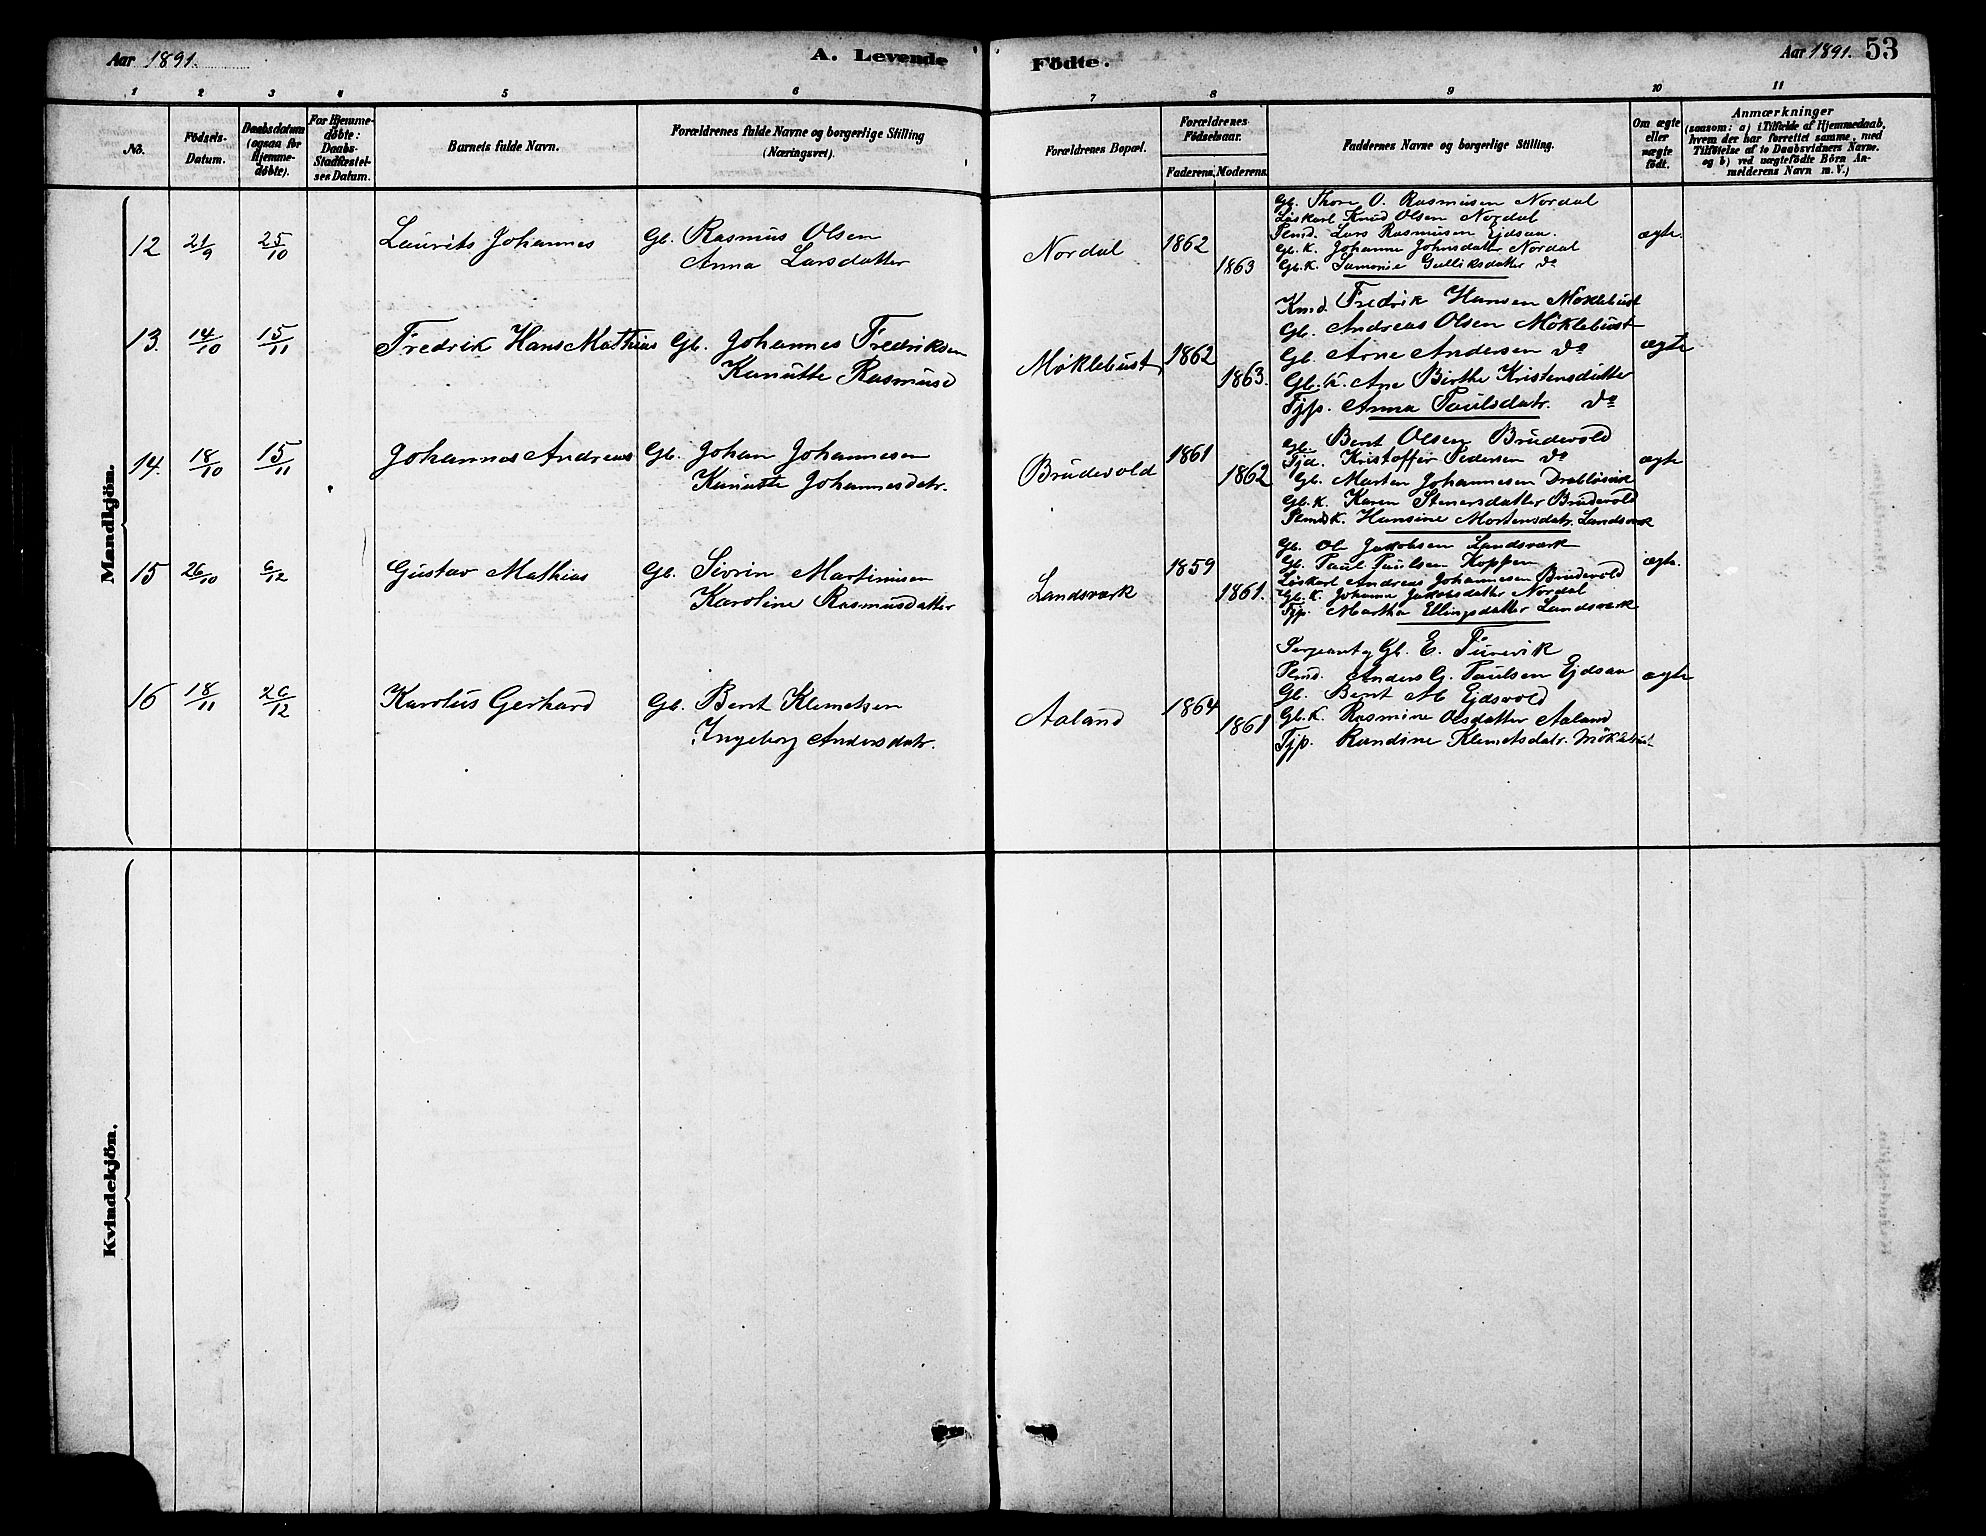 Aar 1891.
A. Levende
Födte.
Aar 1891. 53
1 2 3 4 5 6 7 8 9 10 11
No.
Födsels-
Datum.
Daabsdatum
(ogsaa for
Hjemme-
döbte).
For Hjemme-
döbte:
Daabs-
Stadfæstel-
ses Datum.
Barnets fulde Navn.
Forældrenes fulde Navne og borgerlige Stilling
(Næringsvei).
Forældrenes Bopæl.
Forældrenes
Födselsaar.
Faderens. Moderens.
Faddernes Navne og borgerlige Stilling.
Om ægte
eller
uægte
födt.
Anmærkninger
(saasom: a) i Tilfælde af Hjemmedaab,
hvem der har forrettet samme, med
Tilföielse af to Daabsvidners Navne.
og b) ved uægtefödte Börn An-
melderens Navn m. V.)
Mandkjön.
12 21/9 25/10 Laurits Johannes Gb. Rasmus Olsen
Anna Larsdatter
Nordal 1862
1863
Gb. Thore O. Rasmusen Nordal
Löskarl Knud Olsen Nordal
Plmd. Lars Rasmusen Ejdsaa.
Gb. K. Johanne Johnsdatter Nordal
Gb. K. Gulliksdatter do
ægte.
13. 14/10 15/11 Fredrik Hans Mathias Gb. Johannes Fredriksen
Kanutte Rasmusd
Möklebust 1862
1863.
Knd. Fredrik Hansen Möklebust
Gb. Andreas Olsen Möklebust
Gb. Arne Andersen do
Gb. K. Ane Birthe Kristensdatter
Tjp. Anna Paulsdatr. do
ægte
14. 18/10 15/11 Johannes Andreas Gb. Johan Johannesen
Kanutte Johannesdatr.
Brudevold 1861
1862
Gb. Bernt Olsen Brudevold
Tjd. Kristoffer Pedersen do
Gb. Marten Johannesen Drablösvik
Gb. K. Karen Stenersdatter Brudevold
Plmds K. Hansine Mortensdatr. Landsværk
ægte
15 26/10 6/12 Gustav Mathias Gb. Sivrin Martinusen
Karoline Rasmusdatter
Landsværk 1859
1861.
Gb. Ole Jakobsen Landsværk
Gb. Paul Paulsen Koppen
Löskarl Andreas Johannesen Brudevold
Gb. K. Johanna Jakobsdatter Nordal
Tjp. Martha Ellingsdatter Landsværk
ægte.
16 18/11 26/12 Karolus Gerhard Gb. Bernt Klemetsen
Ingeborg Andersdatr.
Aaland 1864
1861
Sergeant og Gb. E. Furevik
Plmd. Anders G. Paulsen Ejdsaa
Gb. Bernt M Ejdsvold
Gb. K. Rasmine Olsdatter Aaland
Tjp. Randine Klemetsdatr. Möklebust
ægte
Kvindekjön.